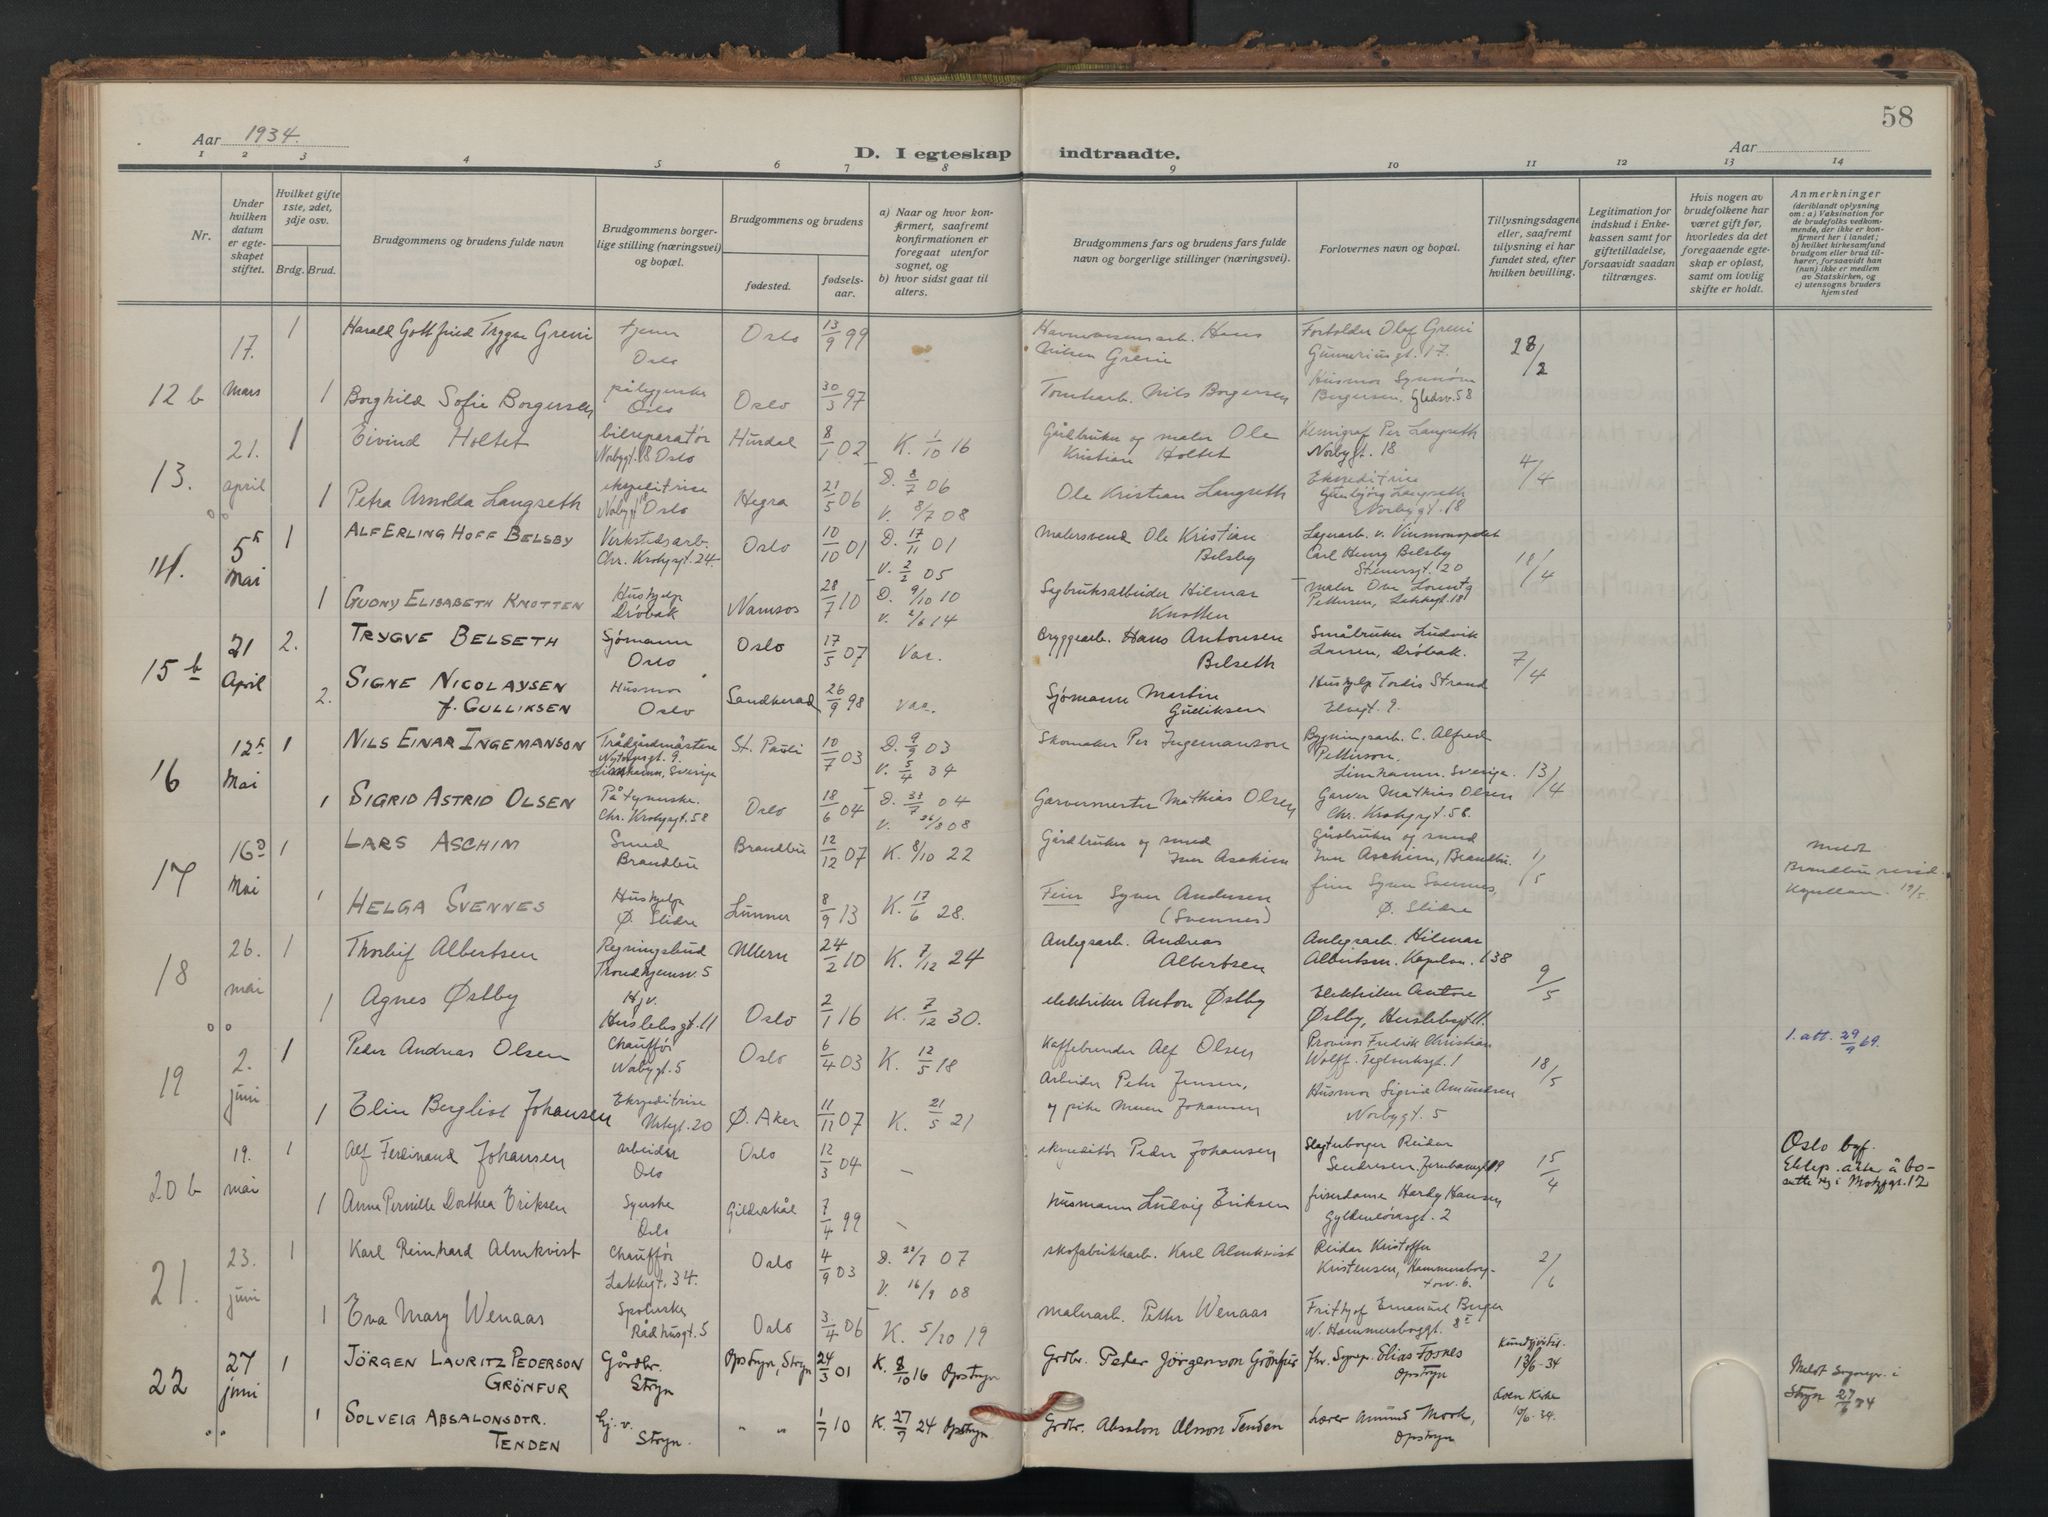 58
Aar 1934.
D. I egteskap indtraadte.
Aar
1 2 3 4 5 6 7 8 9 10 11 12 13 14
Nr.
Under hvilken datum er egteskapet stiftet.
Hvilket gifte 1ste, 2det, 3dje osv.
Brdg. Brud.
Brudgommens og brudens fulde navn
Brudgommens borgerlige stilling (næringsvei) og bopæl.
Brudgommens og brudens
fødested.
fødselsaar.
a) Naar og hvor konfirmert, saafremt konfirmationen er foregaat utenfor sognet, og
b) hvor sidst gaat til alters.
Brudgommens fars og brudens fars fulde navn og borgerlige stillinger (næringsvei).
Forlovernes navn og bopæl.
Tillysningsdagene eller, saafremt tillysning ei har fundet sted, efter hvilken bevilling.
Legitimation for indskud i Enkekassen samt for giftetilladelse, forsaavidt saadan tiltrænges.
Hvis nogen av brudefolkene har været gift før, hvorledes da det foregaaende egteskap er opløst, samt om lovlig skifte er holdt.
Anmerkninger
(deriblandt oplysning om: a) Vaksination for de brudefolks vedkommende, der ikke er konfirmert her i landet; b) hvilket kirkesamfund brudgom eller brud tilhører, forsaavidt han (hun) ikke er medlem av Statskirken, og c) utensogns bruders hjemsted
12 b 17. mars
1 Harald Gottfried Trygve Greni tjener Oslo Oslo 13/9 99 Hans Nilsen Greni Olaf Greni Gunneriusgt. 17. 28/2
1 Borghild Sofie Borgersen Oslo Oslo 30/3 97 Tomtearb. Nils Borgersen Husmor Borgersen, 58
13. 21. april
1 Eivind Holtet bilreparatør Norbygt. 18 Oslo Hurdal 8/1 02 K. 1/10 16 Gårdbruker og maler Ole Kristian Holtet Kemigraf Per Langseth Norbygt. 18 4/4
1 Petra Arnolda Langseth ekspeditrise Norbygt. 18 Oslo Hegra 21/5 06 D. 8/7 06 V. 8/7 08 Ole Kristian Langseth Ekspeditrise Langseth Norbygt. 18
14. 5 Mai
1 ALF ERLING HOFF BELSBY Verkstedsarb. Chr. Krohgsgt. 24 Oslo 10/10 01 D. 17/11 01 V. 2/2 05 Malersvend Ole Kristian Belsby Lagerarb. v. Vinmonopolet Carl Henry Belsby Stenersgt. 20 10/4
1 GUDNY ELISABETH KNOTTEN Hushjelp Drøbak Namsos 28/7 10 D. 9/10 10 V. 2/6 14 Hilmar Knotten maler Pettersen, Lakkegt. 18
15 b 21 April
2. TRYGVE BELSETH Sjømann Oslo Oslo 17/5 07 Var. Bryggearb. Hans Antonsen Belseth Småbruker Ludvik Larsen, Drøbak. 7/4
2. SIGNE NICOLAYSEN f. GULLIKSEN Husmor Oslo Sandherad 26/9 98 Var. Sjømann Martin Gulliksen Hushjelp Tordis Strand Elvegt. 9.
16 12 Mai
1 NILS EINAR INGEMANSON Trädgårdmästare Limhamn, Sverige St. Pauli 10/7 03 D. 9/9 03 V. 5/4 34 Skomaker Per Ingemanson Bygningsarb. C. Alfred Petterson. Limhamn. Sverige. 13/4
1 SIGRID ASTRID OLSEN Chr. Krohgsgt. 58 Oslo 18/6 04 D. 04 V. 26/8 08 Garvermester Mathias Olsen Garver Mathias Olsen Chr. Krohgsgt. 58.
17 16 Mai
1 LARS ASCHIM Smed Brandbu Brandbu 12/12 07 K. 8/10 22 Gårdbruker og smed Iver Aschim Gårdbruker og smed Iver Aschim, Brandbu. 1/5 meldt Brandbu resid. Kapellan. 19/5
1 HELGA SVENNES Hushjelp Ø. Slidre Lunner 8/9 13 K. 17/6 28. Syver Andersen (Svennes) Syver Svennes, Ø. Slidre
18 26. mai
1 Thorleif Albertsen Regningsbud Trondhjemsv. 5 Ullern 24/2 10 K. 7/12 24 Anlegsarb. Andreas Albertsen Anlegsarb. Hilmar Albertsen. 138 9/5
1 Agnes Østby Hj.v. Herslebsgt. 11 Oslo 2/1 16 K. 7/12 30. elektriker Anton Østby Elektriker Østby, Herslebsgt. 11.
19 2. juni
1 Peder Andreas Olsen Chauffør Norbygt. 5 Oslo 6/4 03 K. 12/5 18 Kaffebrender Alf Olsen Provisor Fredrik Christian Wolff. Teglverksgt. 1 18/5 1. att. 29/9 69.
1 Elin Berglist Johansen Ekspeditrise Norbygt. 20 Ø. Aker 11/11 07 K. 21/5 21 Arbeider Peter Jensen, og pike Maren Johansen Husmor Sigrid Amundsen Norbygt. 5
20 b 19. mai
1 Alf Ferdinand Johansen arbeider Oslo Oslo 12/3 04 – ekspeditør Peder Johansen Reidar 15/4 Oslo byf. Ektep. akter å bosette seg i Motzfgt. 12
1 Anne Pernille Dorthea Eriksen Syerske Oslo Gildeskål 7/4 99 – Husmann Ludvig Eriksen frisørdame Hardy Hansen Gyldenløvesgt. 2
21. 23. juni
1 Karl Reinhard Almkvist Chauffør Lakkegt. 34. Oslo 4/9 03 D. 07 V. 16/9 08 skofabrikkarb. Karl Almkvist Reidar Kristoffer Kristensen, Hammersborgtorv. 6. 2/6
1 Eva Mary Wenaas Rådhusgt. 5 Oslo 3/4 06 K. 5/10 19 malerarb. Petter Wenaas Frithjof Emanuel Berger N. Hammersborggt. 8
22 27 juni
1 JÖRGEN LAURITZ PEDERSON GRÖNFUR Gårdbr. Stryn Opstryn, Stryn 24/3 01 K. 8/10 16 Opstryn Grdbr. Peder Jörgenson Grönfur fhv. Elias Fosnes Opstryn 13/6-34 Meldt Sogepr. i Stryn 27/6 34
1 SOLVEIG ABSALONSDTR. TENDEN Hj. v. Stryn. " " 1/7 10 K. 27/7 24 Opstryn Grdbr. Absalon Olsson Tenden Lærer Amund Mork, Opstryn Loen Kirke 10/6-34.